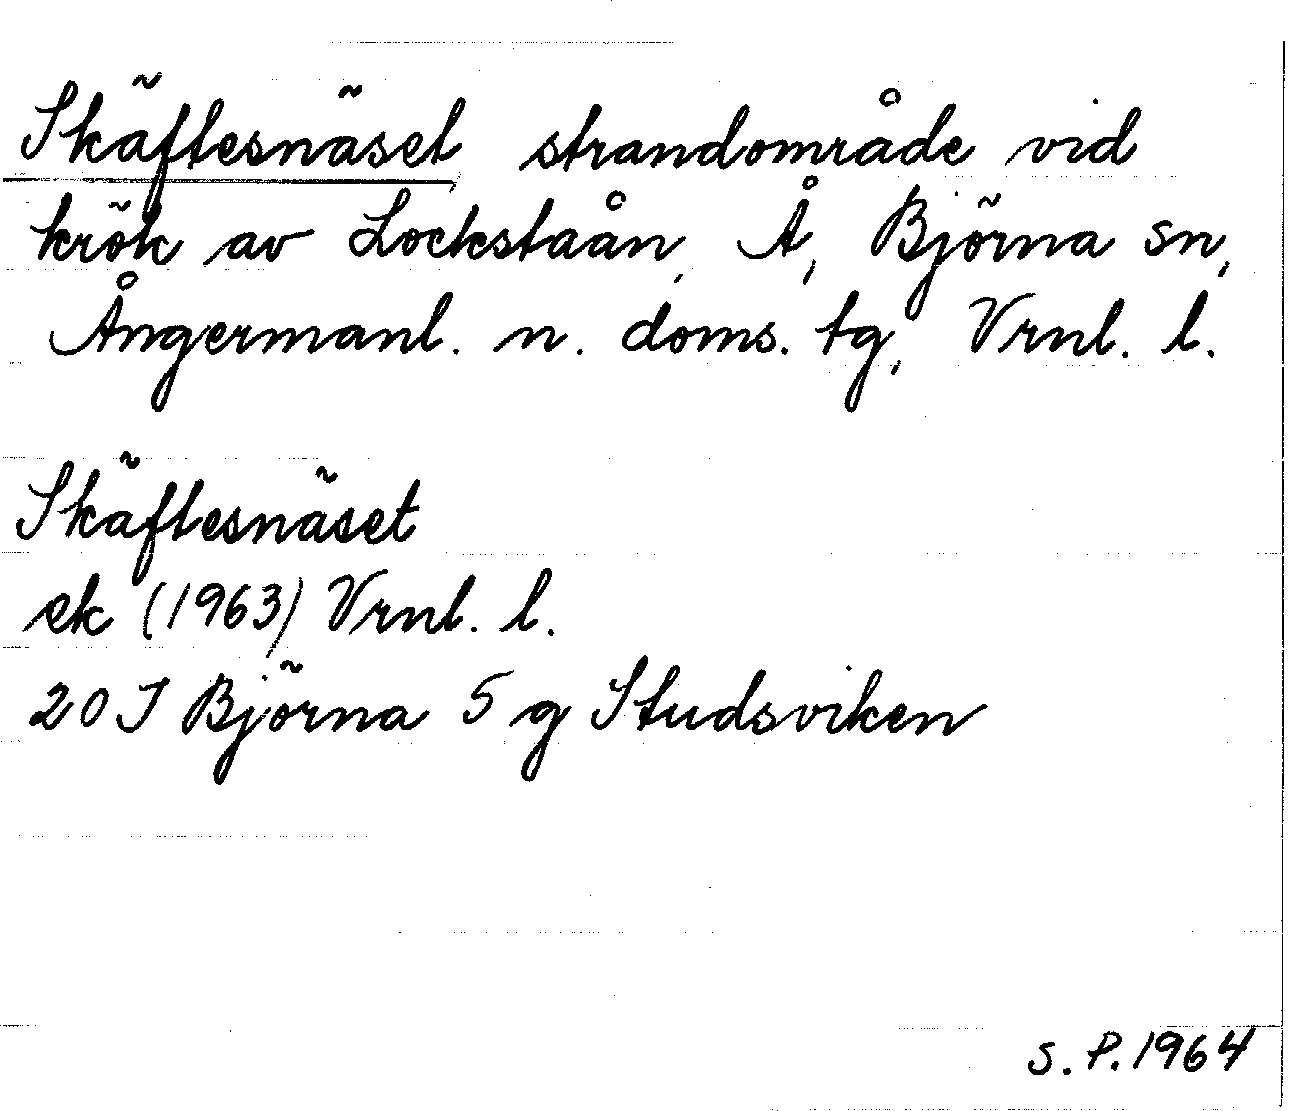 Skäftesnäset strandområde vid
krök av Lockstaån, Å, Björna sn,
Ångermanl. n. doms. tg, Vrnl. l.
Skäftesnäset
ek (1963) Vrnl. l.
20 J Björna 5 g Studsviken
S. P. 1964